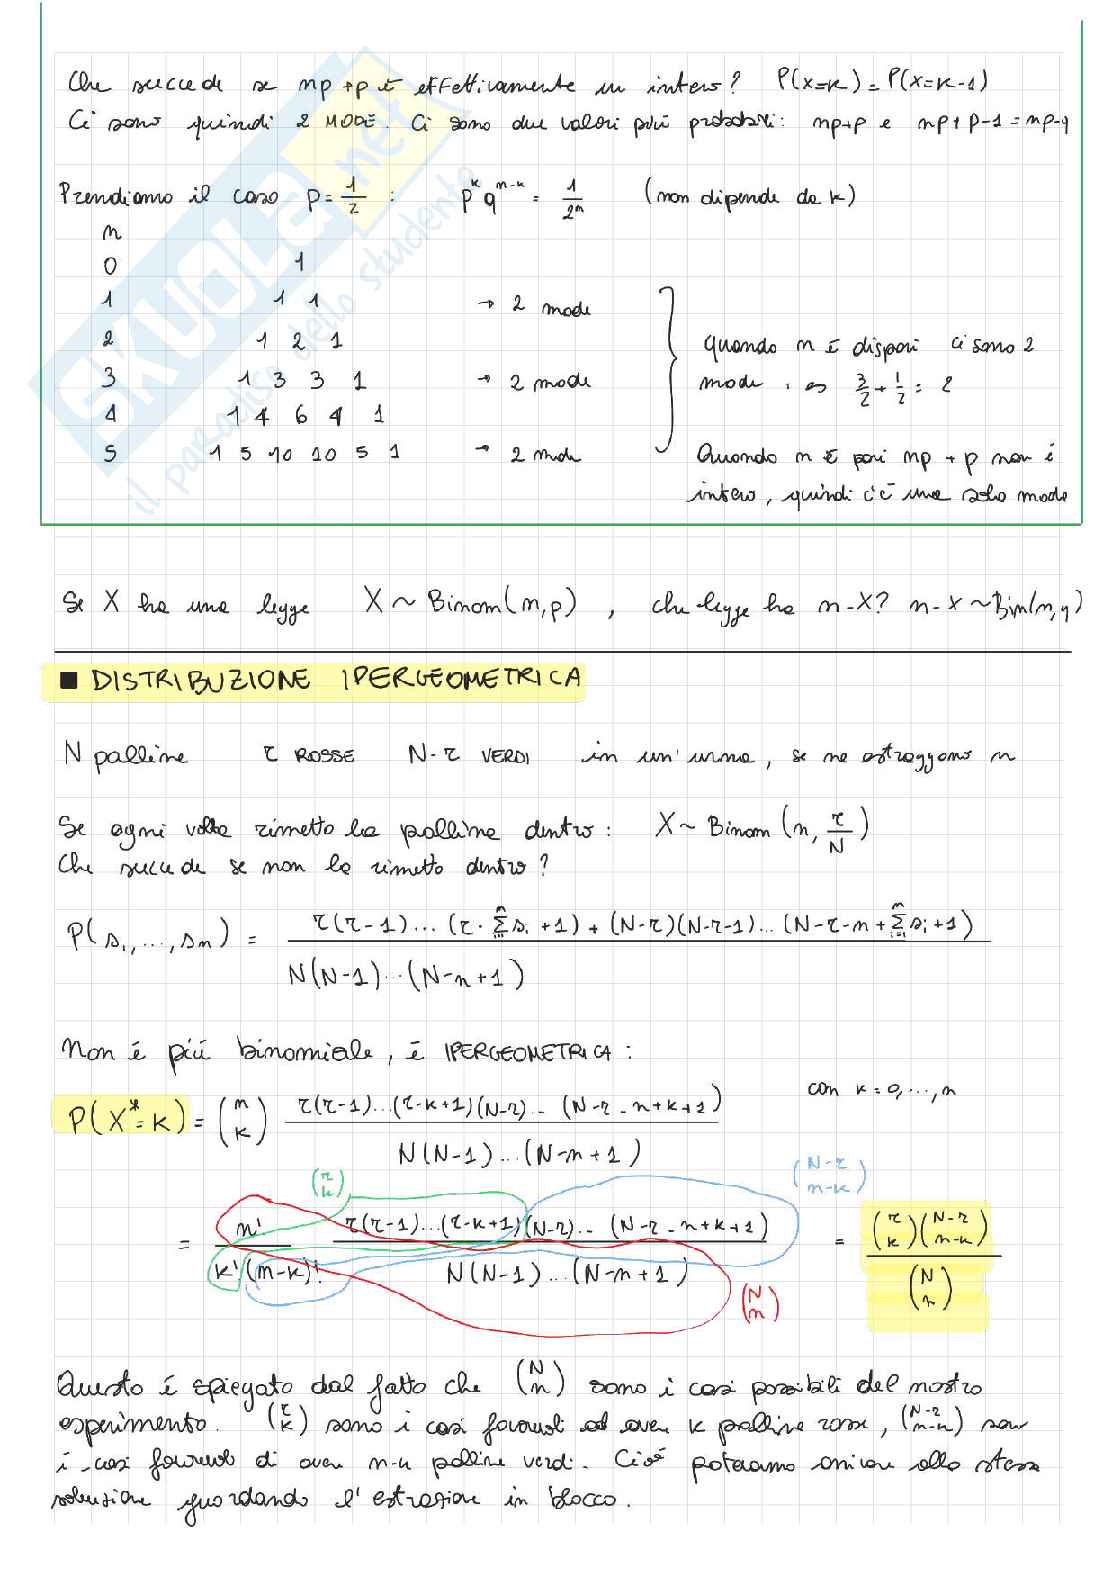 Che succede se np+p è effettivamente un intero? P(X=k) = P(X=k-1)
Ci sono quindi 2 MODE. Ci sono due valori più probabili: np+p e np+p-1 = np-q
Prendiamo il caso p = 1/2 : p^k q^(n-k) = 1/2^n (non dipende da k)
n
0 1
1 1 1 → 2 mode
2 1 2 1
3 1 3 3 1 → 2 mode
4 1 4 6 4 1
5 1 5 10 10 5 1 → 2 mode
Quando n è dispari ci sono 2
mode, es 3/2 + 1/2 = 2
Quando n è pari np + p non è
intero, quindi c'è una sola moda
Se X ha una legge X ~ Binom(n,p) , che legge ha n-X? n-X ~ Bin(n,q)
■ DISTRIBUZIONE IPERGEOMETRICA
N palline r ROSSE N-r VERDI in un'urna, se ne estraggono n
Se ogni volta rimetto la pallina dentro: X ~ Binom (n, r/N)
Che succede se non la rimetto dentro?
P(s₁,...,sn) = r(r-1)...(r-∑ⁿᵢ₌₁ sᵢ +1) + (N-r)(N-r-1)...(N-r-n+∑ⁿᵢ₌₁ sᵢ+1) / N(N-1)...(N-n+1)
Non è più binomiale, è IPERGEOMETRICA:
P(X*=k) = (n k) r(r-1)...(r-k+1)(N-r)...(N-r-n+k+1) / N(N-1)...(N-n+1) con k=0,...,n
(r k) (N-r n-k)
= n! / k!(n-k)! r(r-1)...(r-k+1)(N-r)...(N-r-n+k+1) / N(N-1)...(N-n+1) = (r k)(N-r n-k) / (N n)
(N n)
Questo è spiegato dal fatto che (N n) sono i casi possibili del nostro
esperimento. (r k) sono i casi favorevoli ad avere k palline rosse, (N-r n-k) sono
i casi favorevoli di avere n-k palline verdi. Cioè potevamo arrivare alla stessa
soluzione guardando l'estrazione in blocco.
SKUOLA.net
il paradiso dello studente